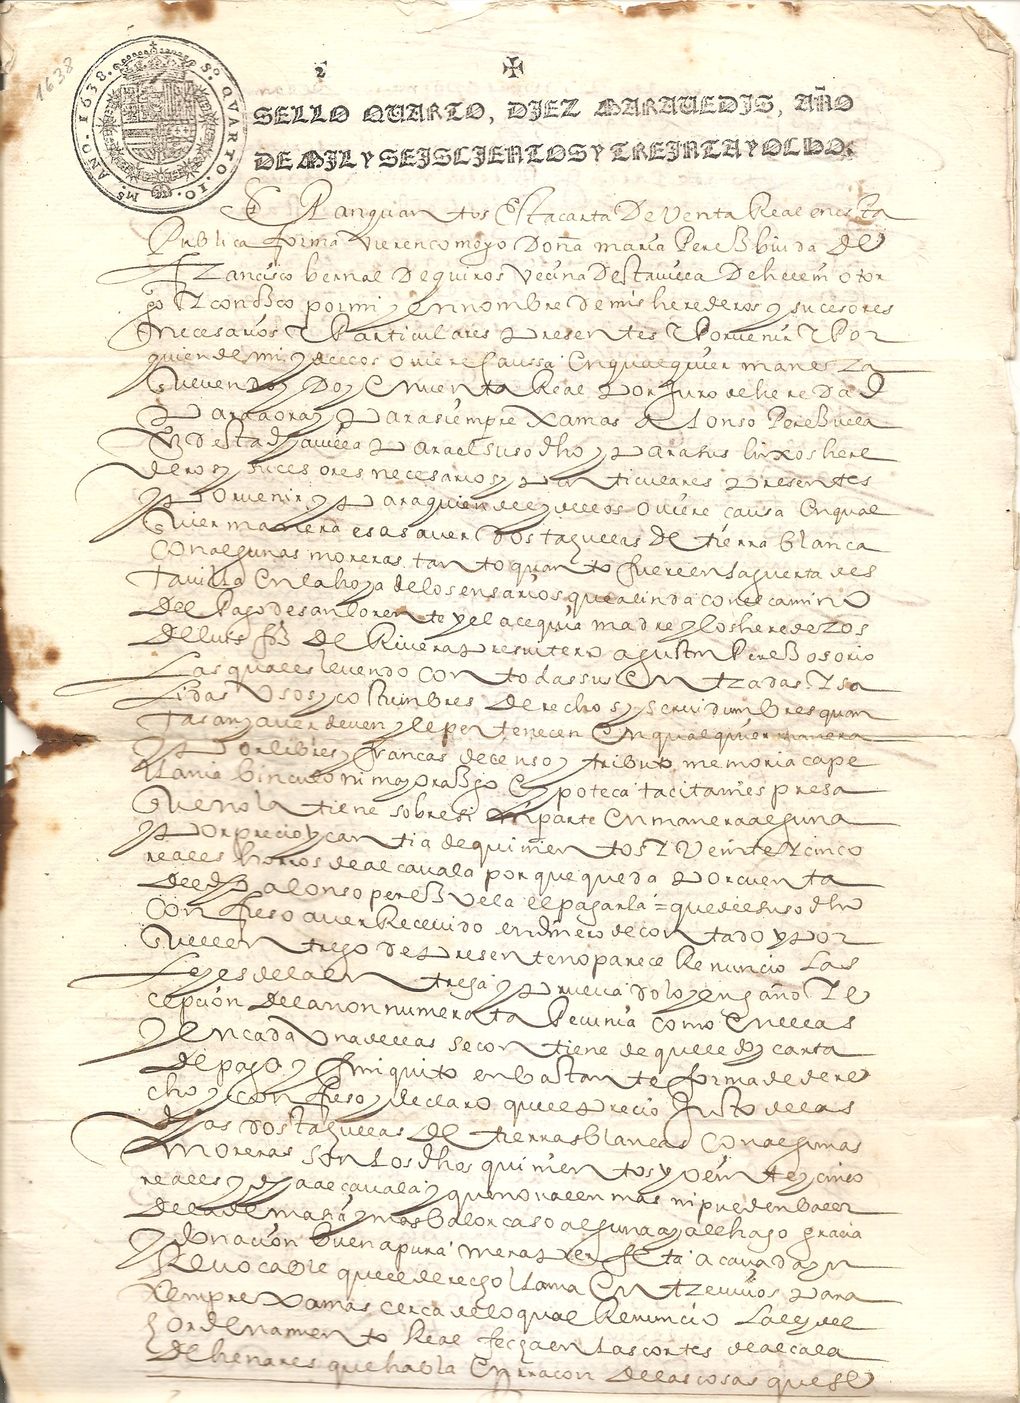 1638
Sº QVARTO. 10. Ms. AÑO. 1638.
SELLO QVARTO, DIEZ MARAVEDIS, AÑO
DE MIL Y SEISCIENTOS Y TREINTA Y OCHO.
quantos Esta carta De Venta Real en esta
Publica forma vieren como yo Doña maria Perez biuda de
francisco bernal De quiros Vecina De sta villa De hellin otor
go y conozco por mi y en nombre de mis herederos y sucesores
necesarios y Particulares Presentes y Porvenir y Por
quien de mi y de ellos oviere Caussa En qual quier manera
que vendo y Doy En venta Real Por juro de heredad
Para aora y Para siempre xamas a Alonso Perez vela
Vº desta dha villa Para el suso dho y Para sus hixos here
deros y sucesores necesarios y Particulares Presentes
y Porvenir y Para quien del y dellos oviere causa En qual
quier manera es a saver Dos tahullas de tierra blanca
con algunas moreras tanto quanto fuere en la guerta des
ta villa En la hoya de los ensarios que alinda con el camino
del Pago de san lorente y el acequia madre y los herederos
de luis frz de Rivera Presvitero agustin Perez osorio
Las quales le vendo con todas sus Entradas y sa
lidas Usos y costumbres derechos y servidumbres quan
tas an y aver deven y le pertenecen En qual quier manera
y Por libres y francas de censo y tributo memoria cape
llania binculo ni mayorazgo E ypoteca tacita ni espresa
que no la tiene sobre si ni parte En manera alguna
y Por precio y cantia de quinientos y Veinte y cinco
reales horros de alcavala por que queda Por cuenta
del dho alonso perez vela el pagarla = que del suso dho
confieso aver Recevido en dinero de contado y Por
que el entrego de Presente no parece Renuncio las
Leyes de la entrega y Prueva dolo y engaño y e
cepcion de la non numerata Pecunia como En ellas
y en cada Una dellas se contiene de que le doy carta
de pago y finiquito en bastante forma de dere
cho y confieso y declaro que el Precio justo de las
dhas dos tahullas de tierras blancas con algunas
moreras son los dhos quinientos y veinte y cinco
reales y dha alcavala y que no valen mas ni pueden baler
de la demasia y mas balor caso alguno aya le hago gracia
y donacion buena pura mera Perfeta acavada yn
Revocable que el derecho llama Entre vivos Para
siempre xamas cerca de lo qual Renuncio La ley del
hordenamiento Real fecha en Las cortes de alcala
de henares que habla En rracon de las cosas que se